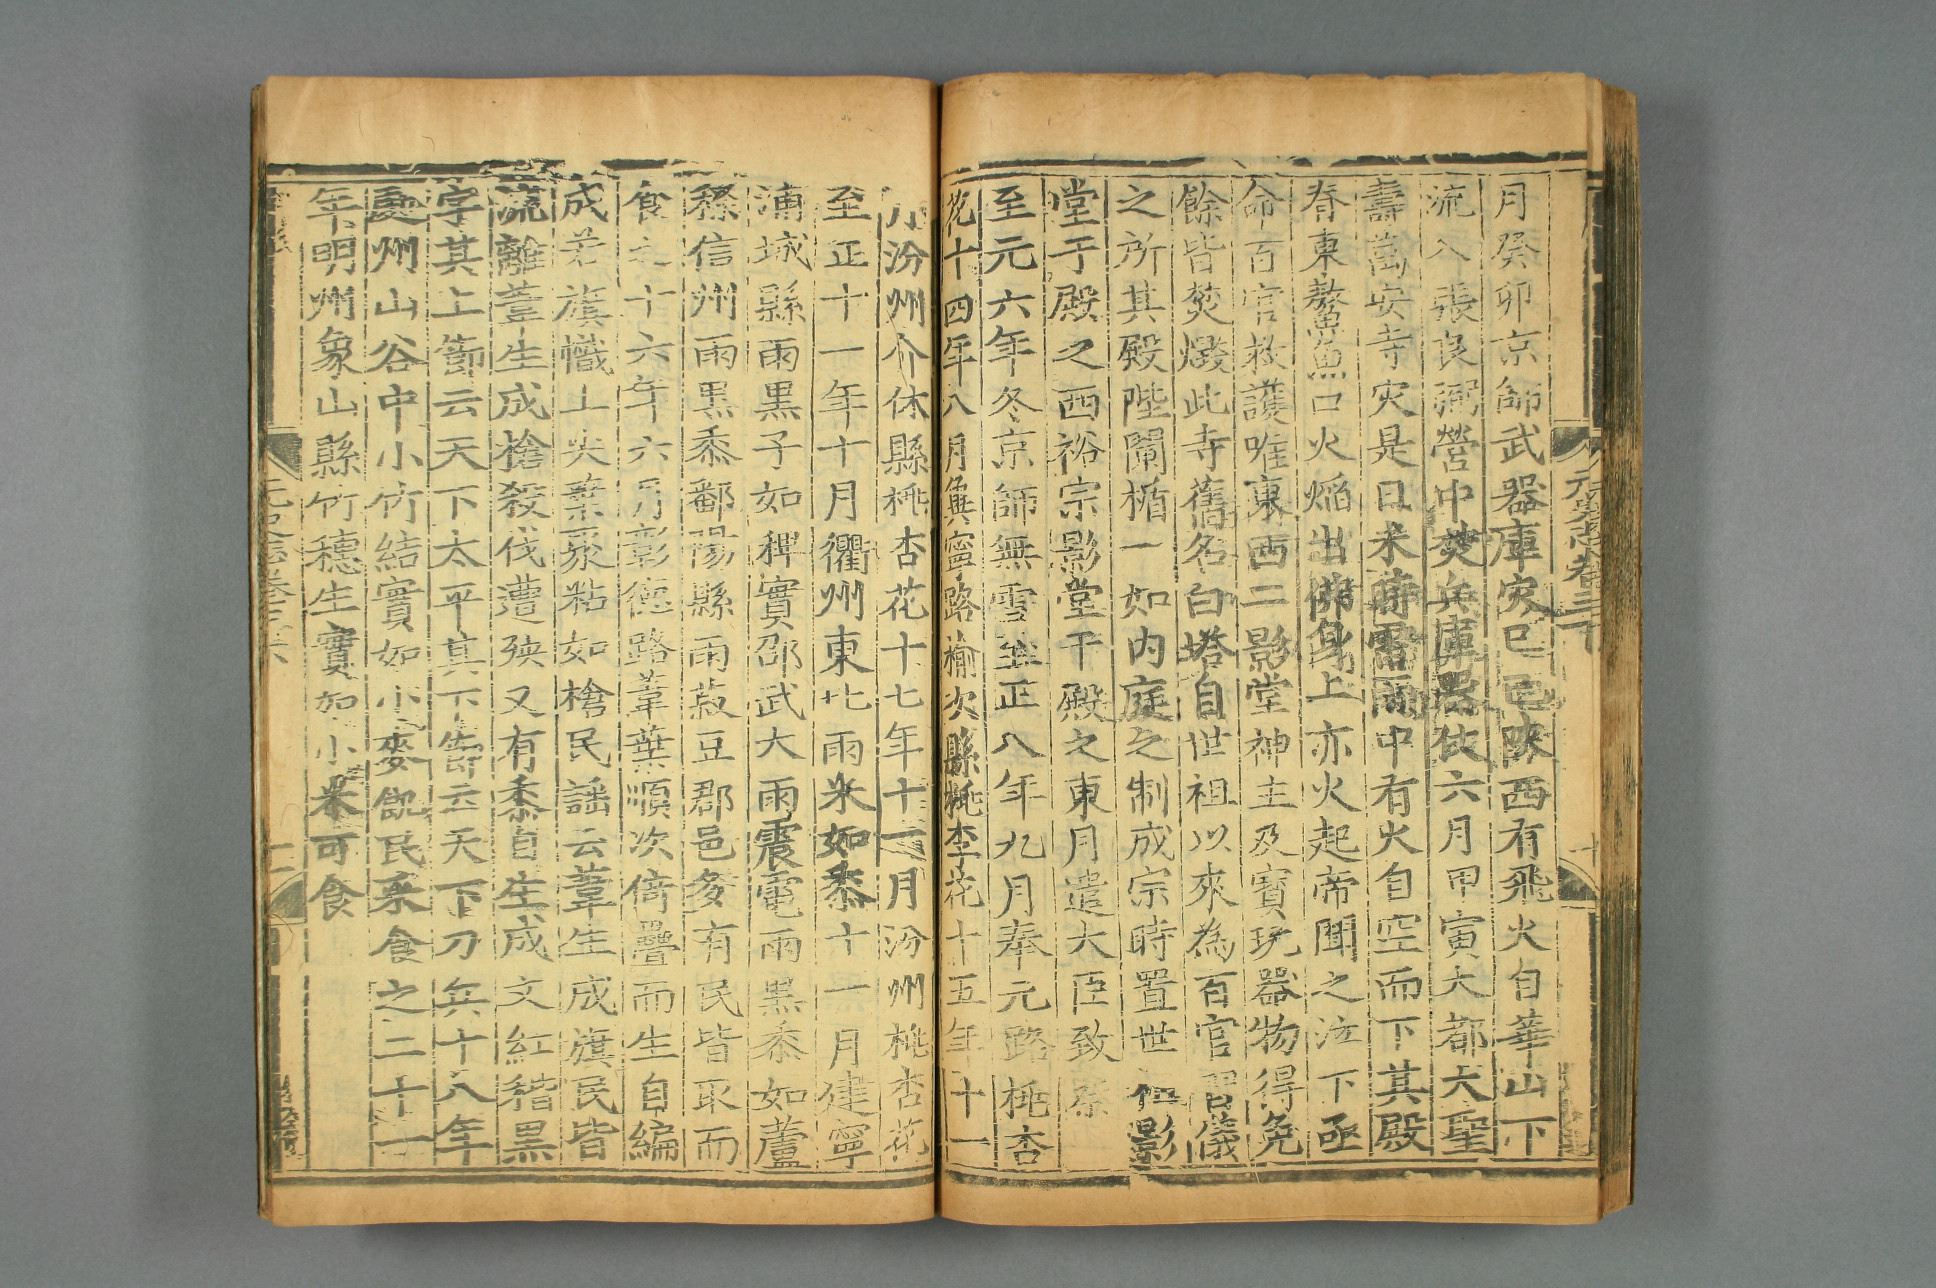 月癸卯京師武器庫灾己巳陝西有飛火自華山下
流入張良弼營中焚兵庫器仗六月甲寅大都大聖
壽萬安寺灾是日未時雷雨中有火自空而下其殿
脊東鰲魚口火焰出佛身上亦火起帝聞之泣下亟
命百官救護唯東西二影堂神主及寳玩器物得免
餘皆焚燬此寺舊名白塔自世祖以來為百官習儀
之所其殿陛闌楯一如内庭之制成宗時置世祖影
堂于殿之西裕宗影堂于殿之東月遣大臣致祭
至元六年冬京師無雪至正八年九月奉元路桃杏
花十四年八月冀寧路榆次縣桃李花十五年十一
汾州介休縣桃杏花十七年十一月汾州桃杏花
至正十一年十月衢州東北雨米如黍十一月建寧
浦城縣雨黑子如稗實邵武大雨震電雨黑黍如蘆
穄信州雨黑黍鄱陽縣雨菽豆郡邑多有民皆取而
食之十六年六月彰德路葦葉順次倚疊而生自編
成若旗幟上尖葉聚粘如槍民謡云葦生成旗民皆
流離葦生成槍殺伐遭殃又有黍自生成文紅稭黑
字其上節云天下太平其下節云天下刀兵十八年
處州山谷中小竹結實如小麥飢民采食之二十一
年明州象山縣竹穗生實如小米可食
元史志卷三下
十